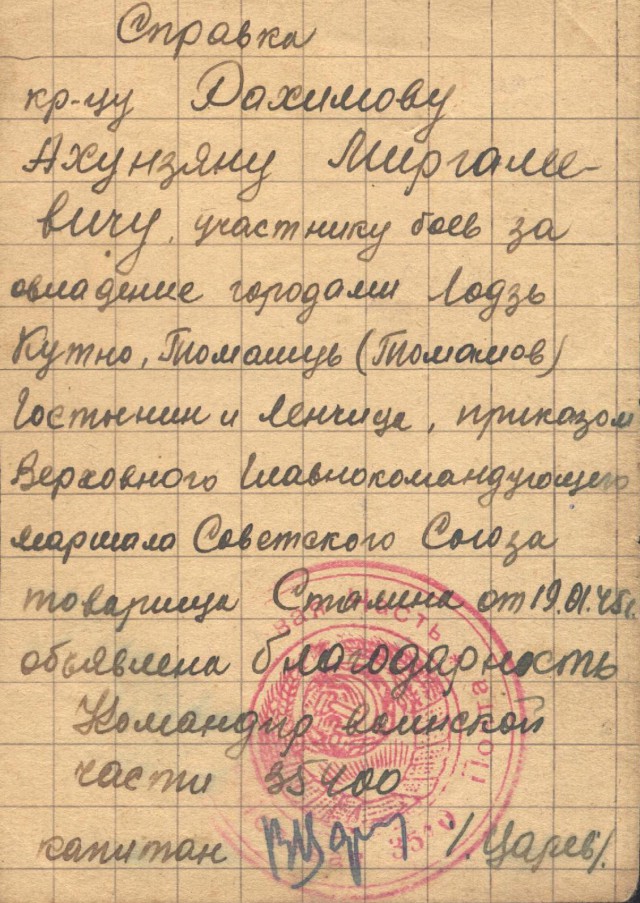 Справка
кр-цу Рахимову
Ахунзяну Миргалее-
вичу, участнику боев за
овладение городами Лодзь
Кутно, Томашув (Томашов)
Гостынин и Ленчица, приказом
Верховного Главнокомандующего
маршала Советского Союза
товарища Сталина от 19.01.45г.
объявлена благодарность
Командир воинской
части 35400
капитан /. Царев/.